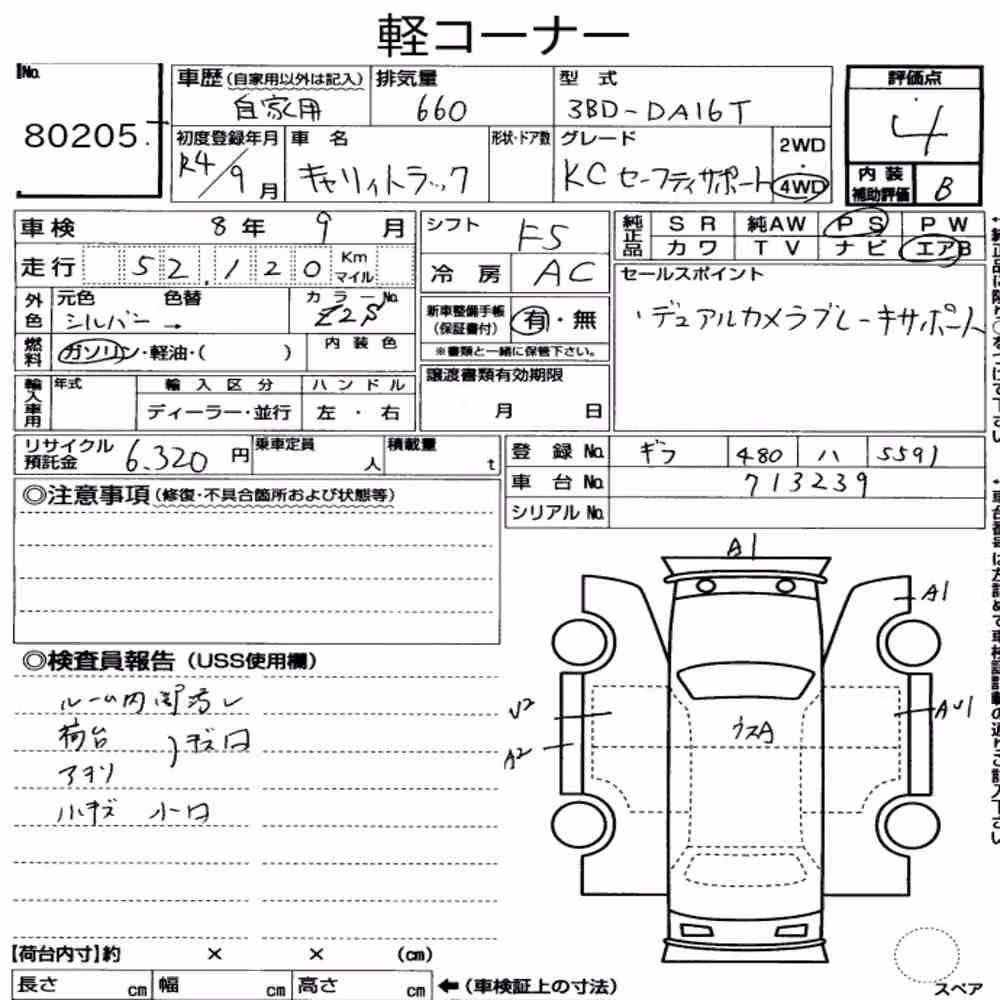 軽コーナー
No.
80205.
車歴(自家用以外は記入)
自家用
排気量
660
型 式
3BD-DA16T
評価点
4
初度登録年月
R4/9月
車 名
キャリイトラック
形状・ドア数
グレード
KC セーフティサポート
2WD
・
4WD
内装補助評価
B
車検 8年 9月
シフト
F5
純正品
SR 純AW PS PW
カワ TV ナビ エアB
走行 52,120 Km マイル
冷房
AC
セールスポイント
・デュアルカメラブレーキサポート
外色
元色 色替
シルバー →
カラーNo.
Z2S
新車整備手帳(保証書付)
有・無
※書類と一緒に保管下さい。
燃料
ガソリン・軽油・( )
内装色
譲渡書類有効期限
月 日
輸入車用
年式
輸入区分
ディーラー・並行
ハンドル
左・右
リサイクル預託金 6.320円
乗車定員 人
積載量 t
登録No. ギフ 480 ハ 5591
車台No. 713239
シリアルNo.
◎注意事項(修復・不具合箇所および状態等)
◎検査員報告(USS使用欄)
ルーム内 汚レ
荷台
アオリ
)キズ凹
小キズ 小凹
A1
A1
U2
A2
ウスA
AU1
【荷台内寸】約 × × (cm)
長さ cm 幅 cm 高さ cm ←(車検証上の寸法)
スペア